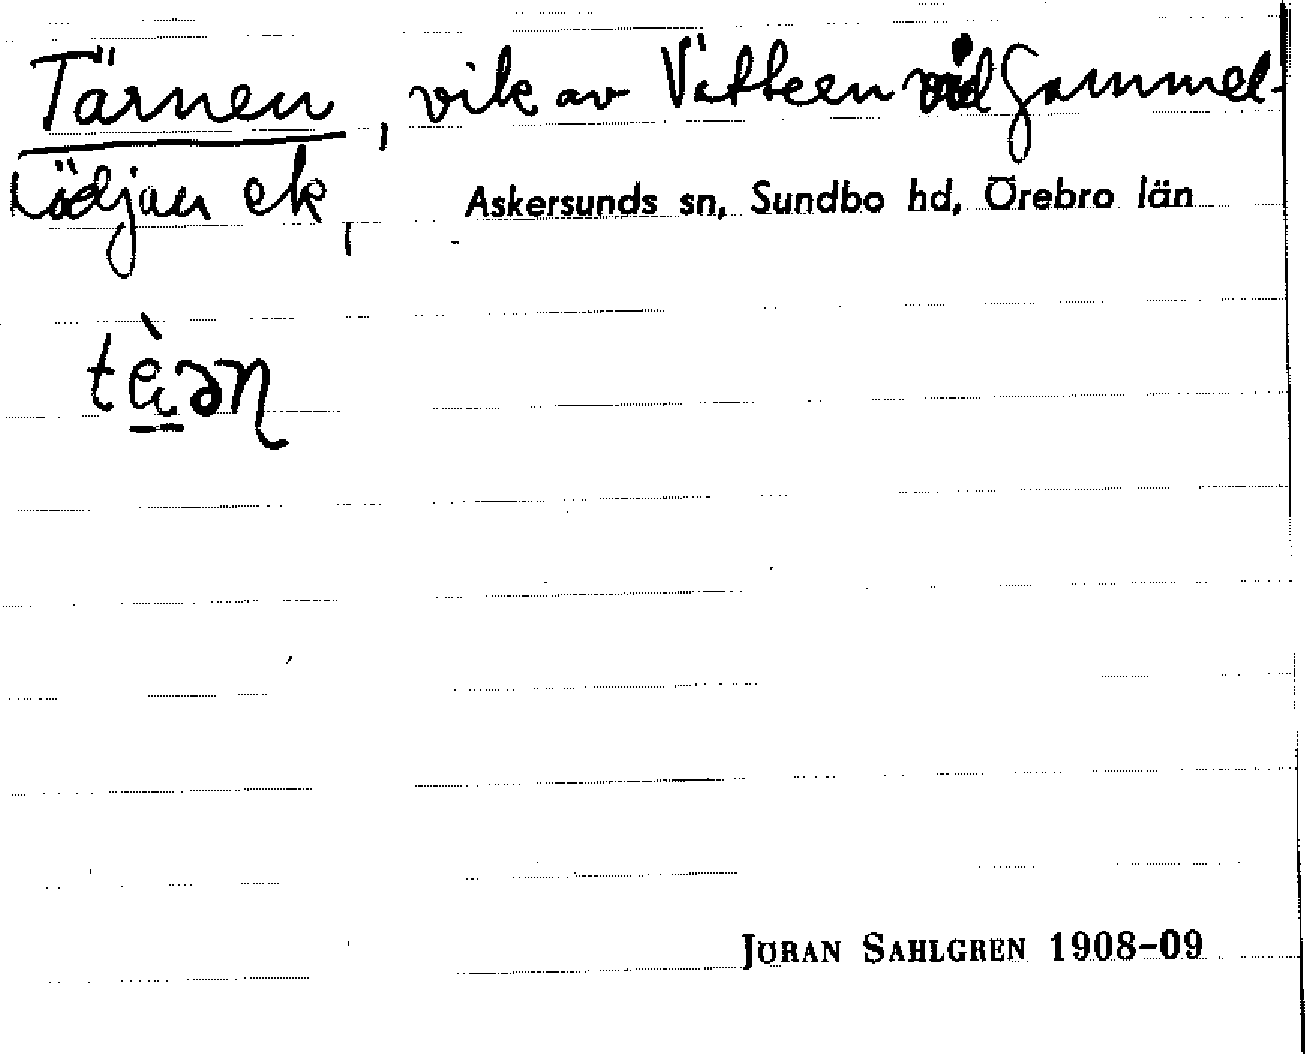 Tärnen, vik av Vättern vid Gammel-
lödjan ek, Askersunds sn, Sundbo hd, Örebro län
JÖRAN SAHLGREN 1908-09